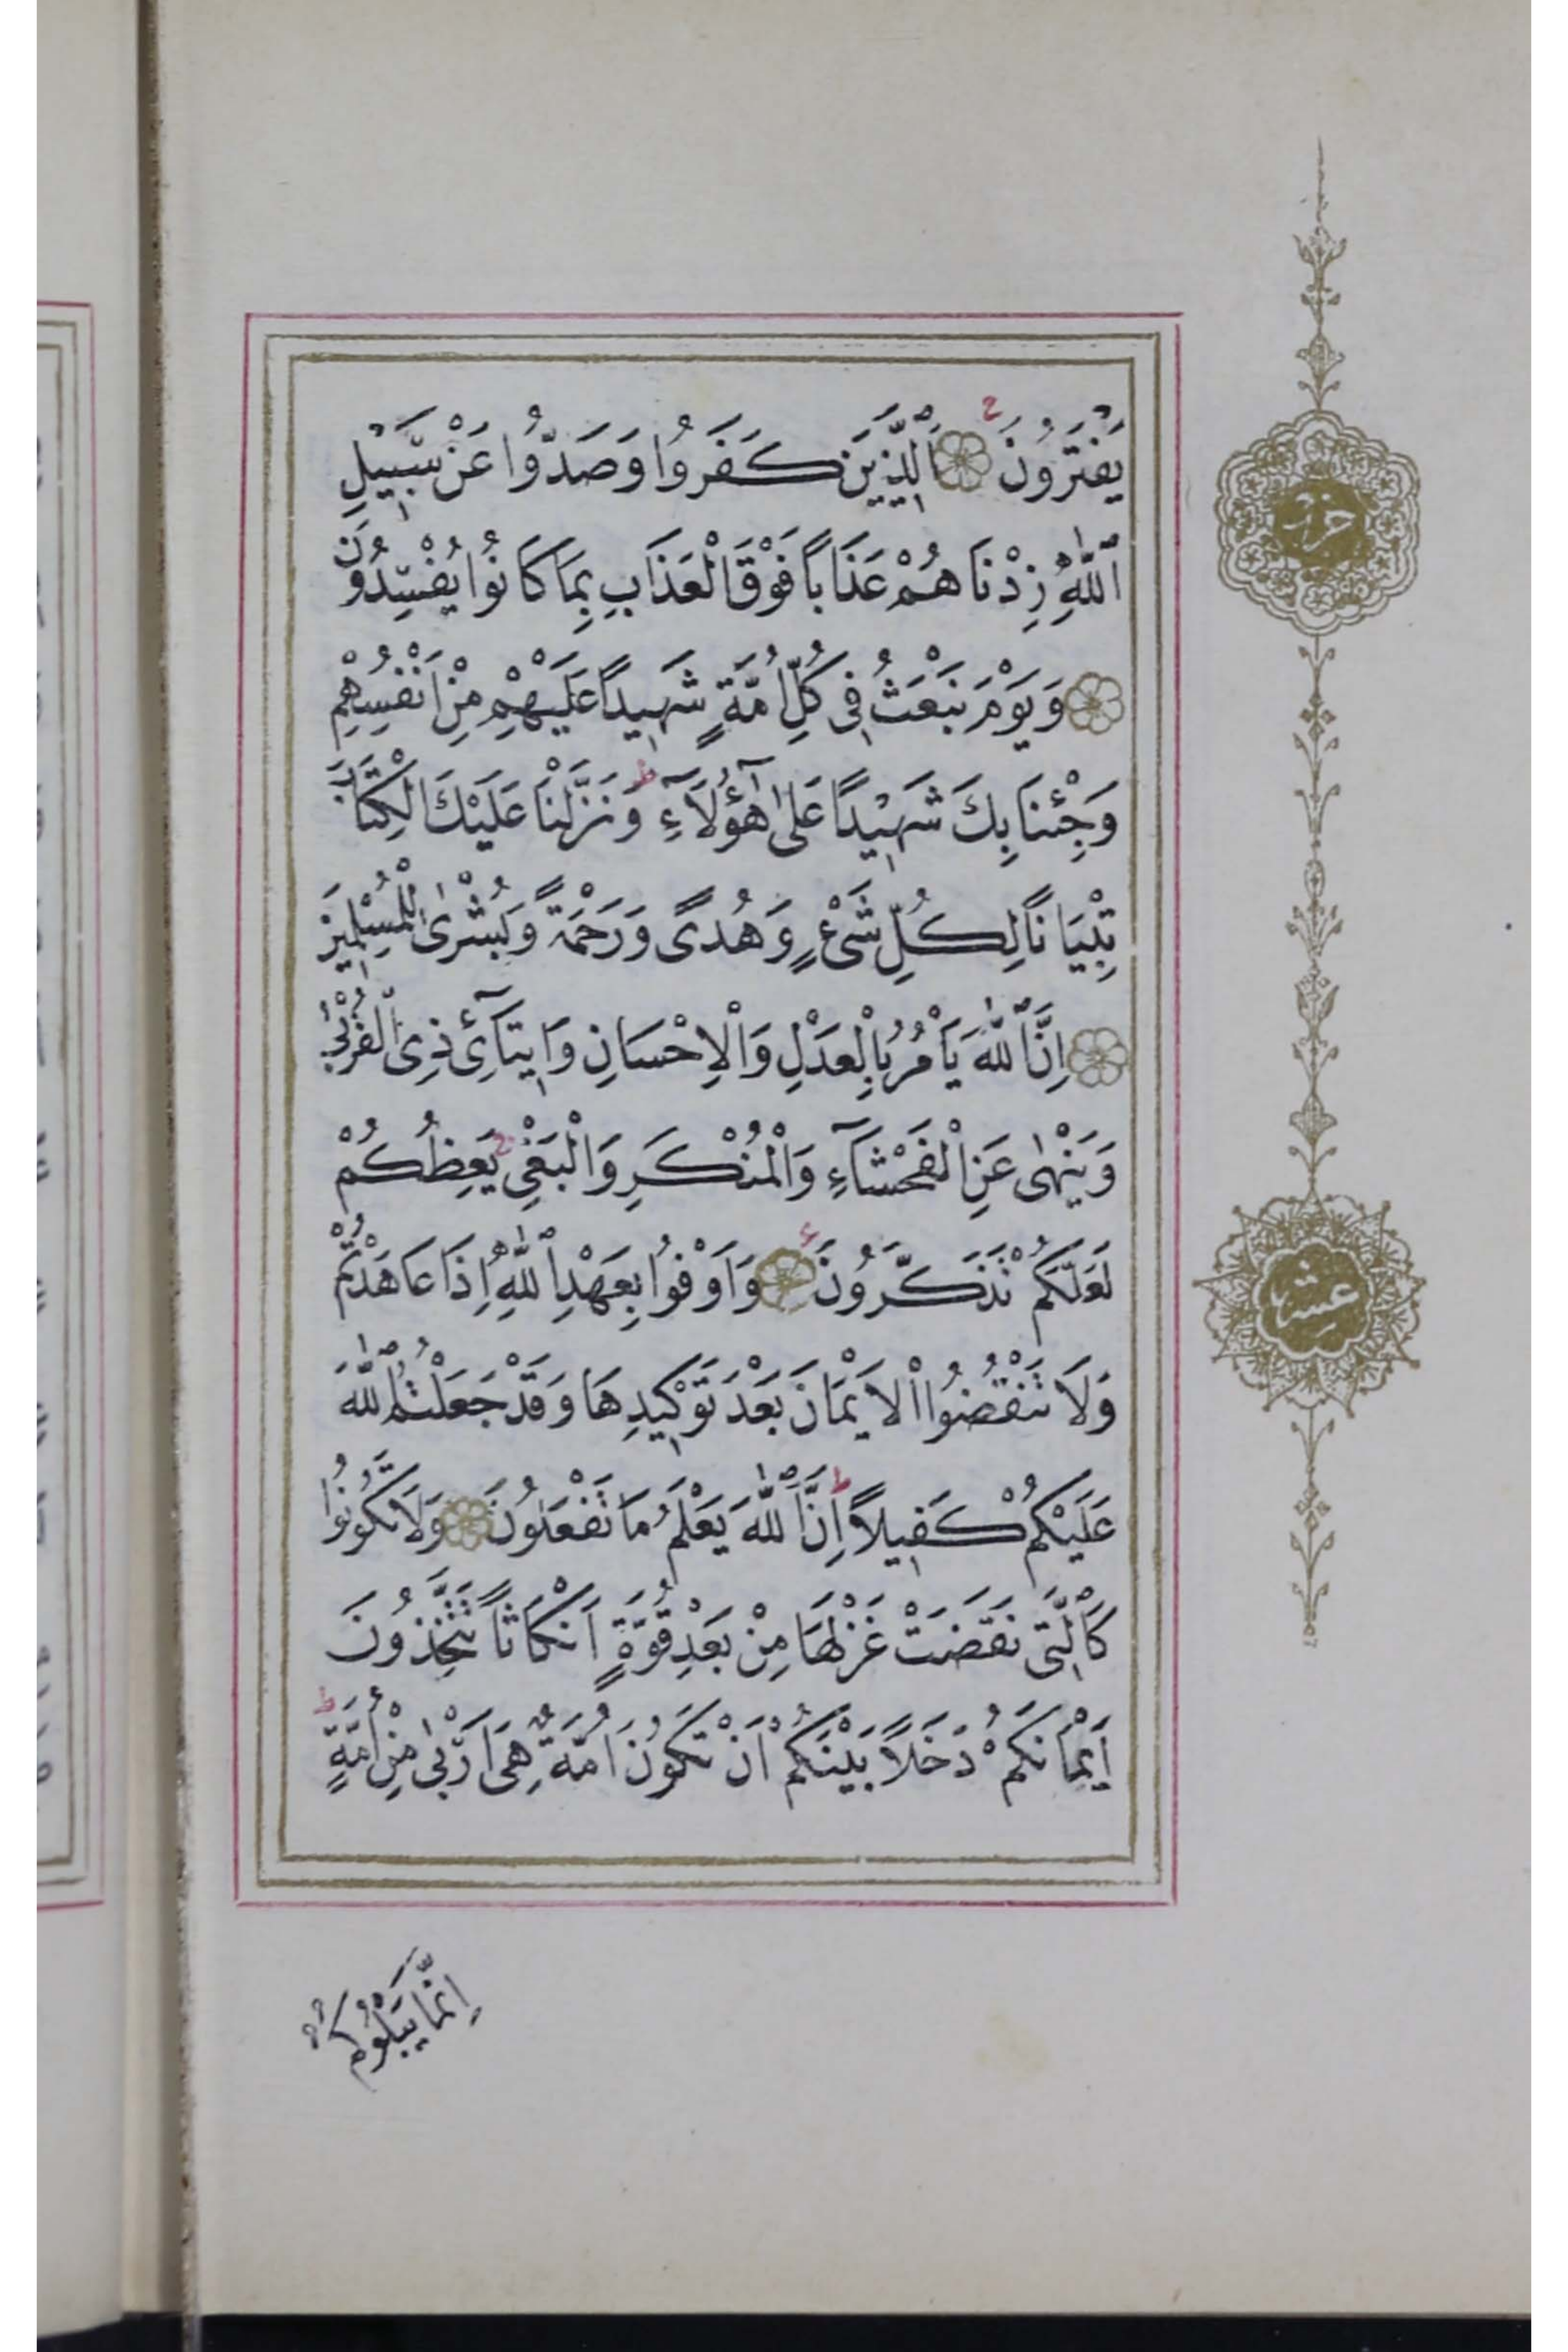 يَفْتَرُونَ ۞ اَلَّذِينَ كَفَرُوا وَصَدُّوا عَنْ سَبِيلِ
اللّٰهِ زِدْنَاهُمْ عَذَاباً فَوْقَ الْعَذَابِ بِمَا كَانُوا يُفْسِدُونَ
۞ وَيَوْمَ نَبْعَثُ فِى كُلِّ اُمَّةٍ شَهِيداً عَلَيْهِمْ مِنْ اَنْفُسِهِمْ
وَجِئْنَا بِكَ شَهِيدًا عَلٰى هٰٓؤُلَآءِ ط وَنَزَّلْنَا عَلَيْكَ الْكِتَابَ
تِبْيَاناً لِكُلِّ شَىْءٍ وَهُدىً وَرَحْمَةً وَبُشْرٰى لِلْمُسْلِمِينَ
۞ اِنَّ اللّٰهَ يَأْمُرُ بِالْعَدْلِ وَالْاِحْسَانِ وَاِيتَآئِ ذِى الْقُرْبٰى
وَيَنْهٰى عَنِ الْفَحْشَآءِ وَالْمُنْكَرِ وَالْبَغْىِ ج يَعِظُكُمْ
لَعَلَّكُمْ تَذَكَّرُونَ ۞ وَاَوْفُوا بِعَهْدِ اللّٰهِ اِذَا عَاهَدْتُمْ
وَلَا تَنْقُضُوا الْاَيْمَانَ بَعْدَ تَوْكِيدِهَا وَقَدْ جَعَلْتُمُ اللّٰهَ
عَلَيْكُمْ كَفِيلاً ط اِنَّ اللّٰهَ يَعْلَمُ مَا تَفْعَلُونَ ۞ وَلَا تَكُونُوا
كَالَّتِى نَقَضَتْ غَزْلَهَا مِنْ بَعْدِ قُوَّةٍ اَنْكَاثاً تَتَّخِذُونَ
اَيْمَانَكُمْ دَخَلاً بَيْنَكُمْ اَنْ تَكُونَ اُمَّةٌ هِىَ اَرْبٰى مِنْ اُمَّةٍ ط
اِنَّمَا يَبْلُوكُمُ
حزب
عشر